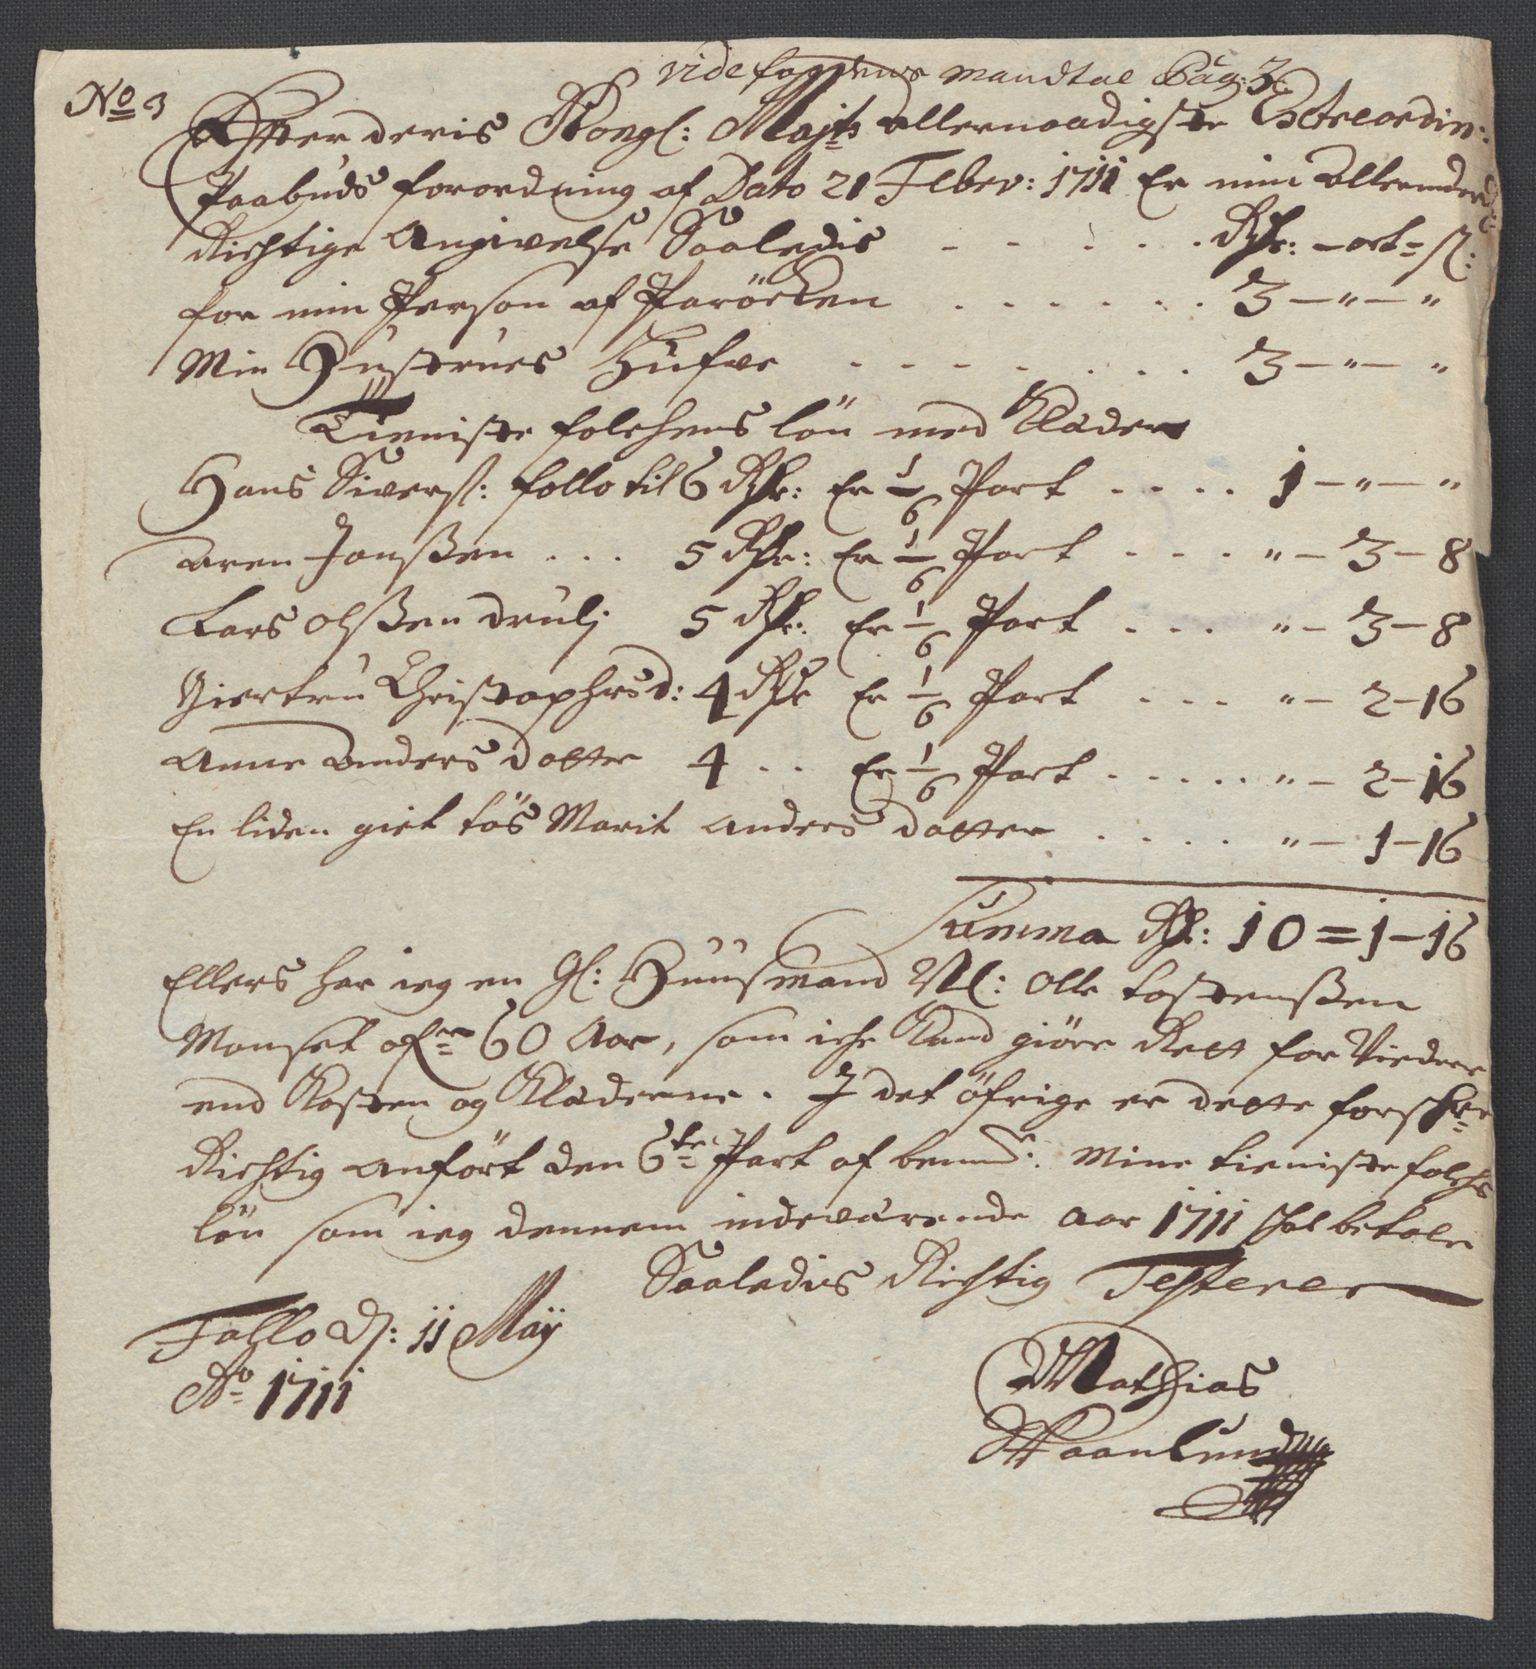 vide fogdens mandtal Pag: 3
No 3
Effter deris Kongl: Majts allernaadigste Extraordin:
Paabuds forordning af Dato 21 Febrv: 1711 Er min allerunder
Richtige Angivelse Saaledis - - - - - Rdr: - ort - s:
for min Person af Paröcken . . . . . . 3 - " - "
Min Hustrues Hufve . . . . . . . 3 - " - "
Tieniste folchens lön med Klæder
Hans Sivers: follo til 6 Rdr: Er 1/6 Part . . . . 1 - " - "
Aren Jonssen . . . 5 Rdr: Er 1/6 Part . . . " - 3 - 8
Lars Olssen 5 Rdr: Er 1/6 Part . . . " - 3 - 8
Giertru Christophersd: 4 Rdr Er 1/6 Part . . . " - 2 - 16
Anne Anders Datter 4 . . Er 1/6 Part . . . . . " - 2 - 16
En liden giet tös Marit Anders Datter . . . . " - 1 - 16
Summa Rdr: 10 = 1 - 16
Ellers har ieg en gl: Huusmand Nl: Olle Tostenssen
Monset ofr 60 Aar, som iche Kand giöre Rett for Viedere
end Kosten og Klæderne. J det öfrige er dette forschr
Richtig anfört den 6te Part af bemte: Mine tieniste folchs
lön som ieg dennem indeværende Aar 1711 schal betale
Saaledis Richtig Testerer
Follo D: 11 Maÿ
Ao 1711
Mathias
Waanlund